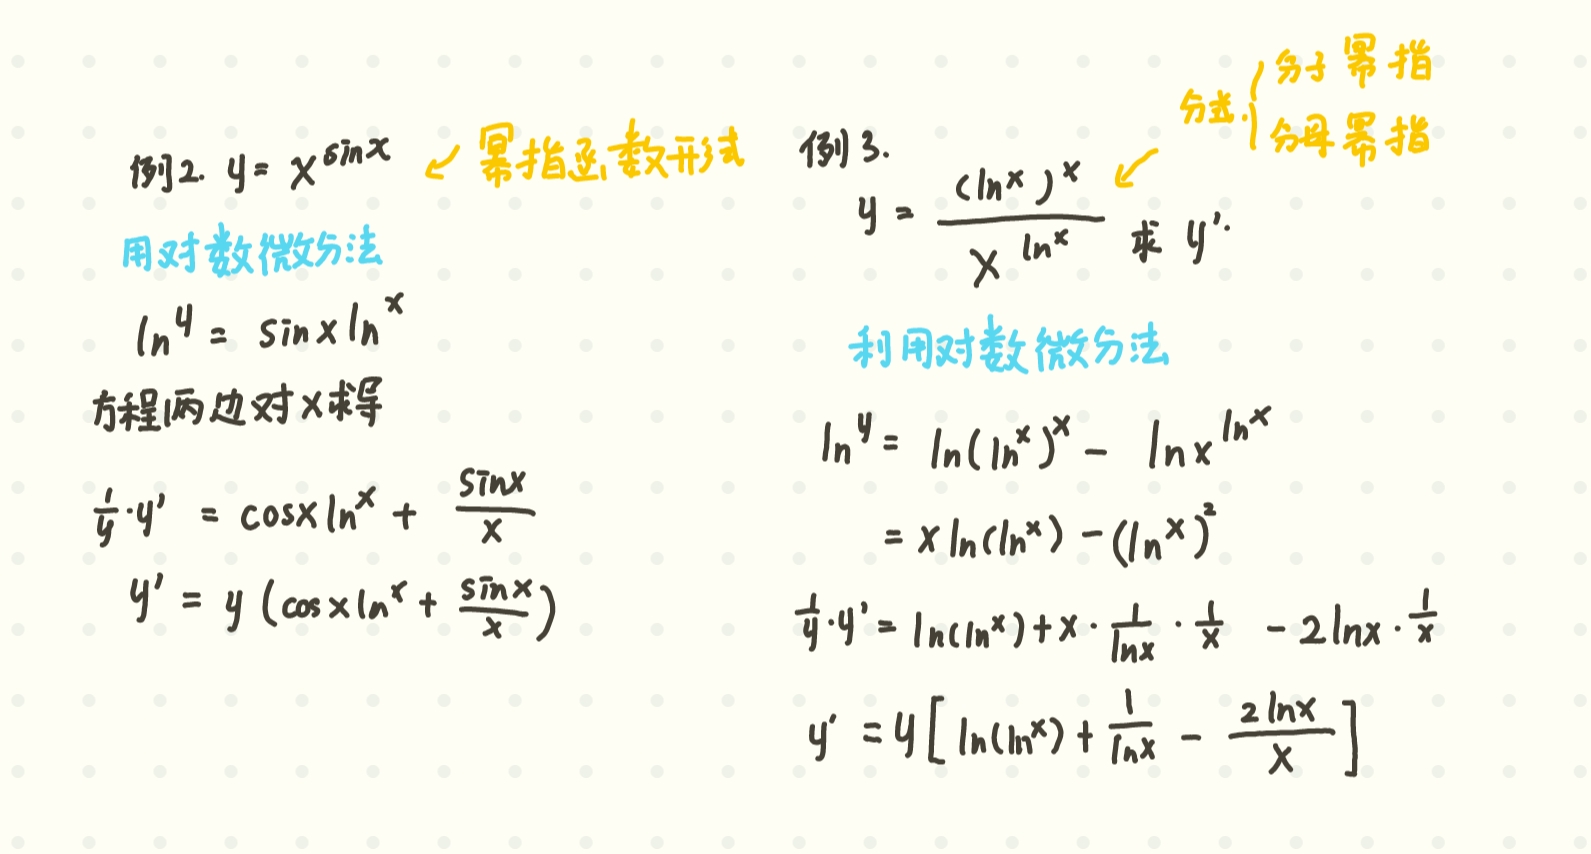 例2. y = x^{sinx} ↙ 幂指函数形式
用对数微分法
ln^y = sinx ln^x
方程两边对x求导
1/y · y' = cosx ln^x + sinx/x
y' = y (cosx ln^x + sinx/x)
例3.
分式. { 分子幂指
分母幂指
y = (ln^x)^x / x^{ln^x} 求 y'.
利用对数微分法
ln^y = ln(ln^x)^x - lnx^{ln^x}
= x ln(ln^x) - (ln^x)^2
1/y · y' = ln(ln^x) + x · 1/lnx · 1/x - 2lnx · 1/x
y' = y [ ln(ln^x) + 1/lnx - 2lnx/x ]